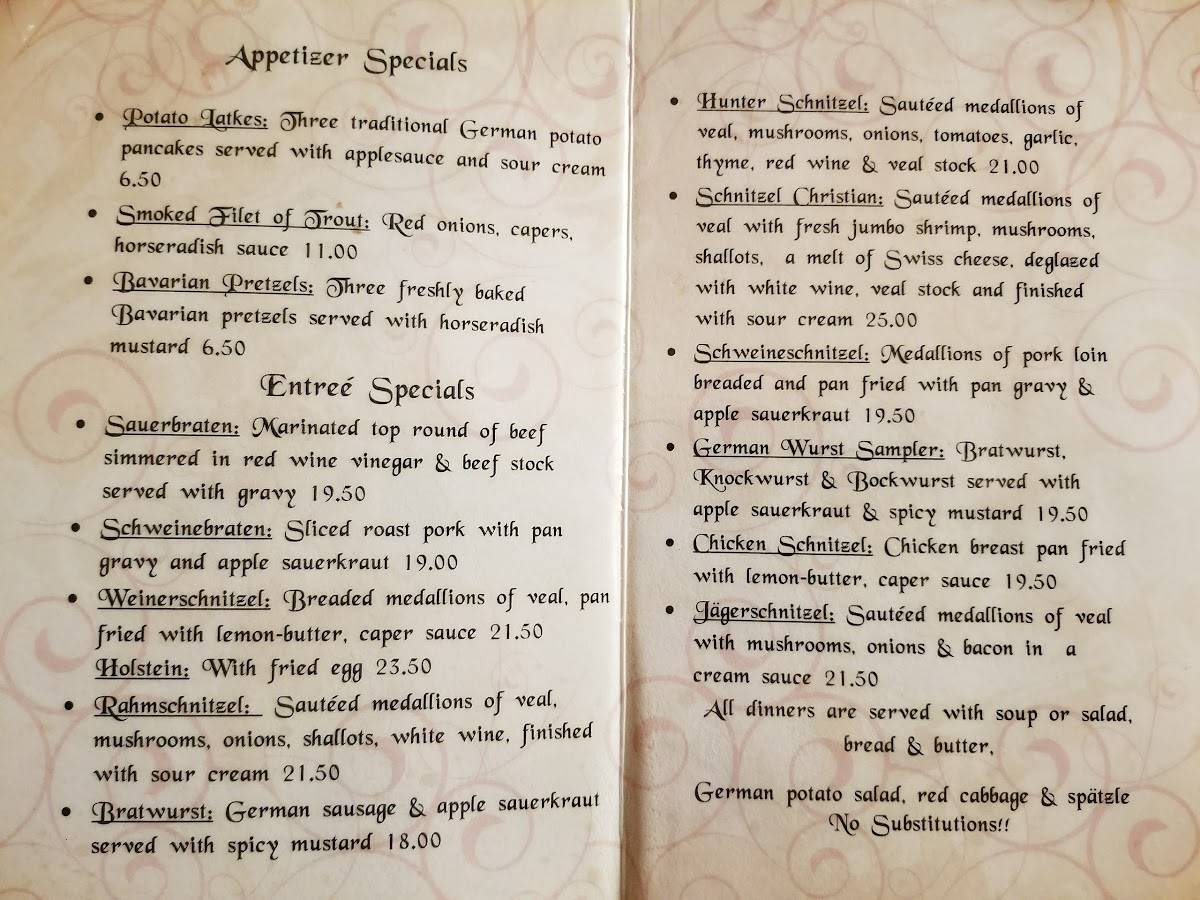 Appetizer Specials
• Potato Latkes: Three traditional German potato
pancakes served with applesauce and sour cream
6.50
• Smoked Filet of Trout: Red onions, capers,
horseradish sauce 11.00
• Bavarian Pretzels: Three freshly baked
Bavarian pretzels served with horseradish
mustard 6.50
Entreé Specials
• Sauerbraten: Marinated top round of beef
simmered in red wine vinegar & beef stock
served with gravy 19.50
• Schweinebraten: Sliced roast pork with pan
gravy and apple sauerkraut 19.00
• Weinerschnitzel: Breaded medallions of veal, pan
fried with lemon-butter, caper sauce 21.50
Holstein: With fried egg 23.50
• Rahmschnitzel: Sautéed medallions of veal,
mushrooms, onions, shallots, white wine, finished
with sour cream 21.50
• Bratwurst: German sausage & apple sauerkraut
served with spicy mustard 18.00
• Hunter Schnitzel: Sautéed medallions of
veal, mushrooms, onions, tomatoes, garlic,
thyme, red wine & veal stock 21.00
• Schnitzel Christian: Sautéed medallions of
veal with fresh jumbo shrimp, mushrooms,
shallots, a melt of Swiss cheese, deglazed
with white wine, veal stock and finished
with sour cream 25.00
• Schweineschnitzel: Medallions of pork loin
breaded and pan fried with pan gravy &
apple sauerkraut 19.50
• German Wurst Sampler: Bratwurst,
Knockwurst & Bockwurst served with
apple sauerkraut & spicy mustard 19.50
• Chicken Schnitzel: Chicken breast pan fried
with lemon-butter, caper sauce 19.50
• Jägerschnitzel: Sautéed medallions of veal
with mushrooms, onions & bacon in a
cream sauce 21.50
All dinners are served with soup or salad,
bread & butter,
German potato salad, red cabbage & spätzle
No Substitutions!!